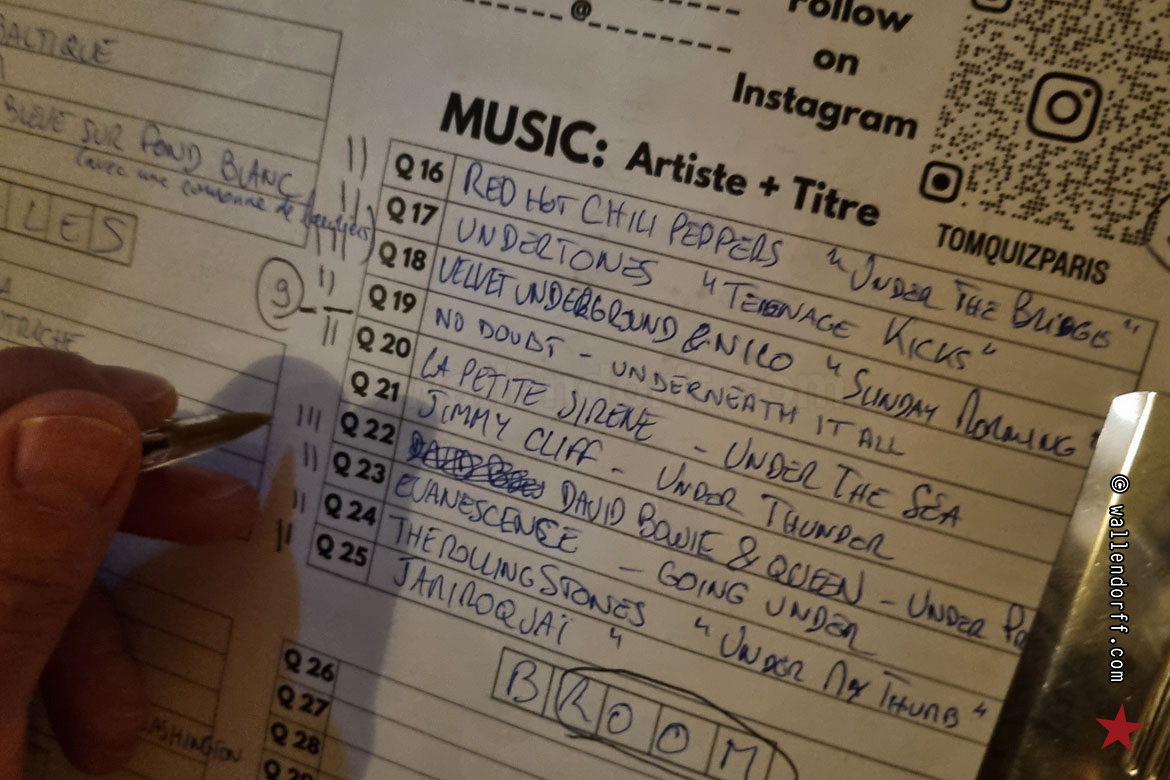 @
Follow
on
Instagram
BALTIQUE
BLEUE SUR FOND BLANC
(avec une couronne de lauriers)
LES
MUSIC: Artiste + Titre
TOMQUIZPARIS
Q 16 RED HOT CHILI PEPPERS "UNDER THE BRIDGE"
Q 17 UNDERTONES "TEENAGE KICKS"
Q 18 VELVET UNDERGROUND & NICO "SUNDAY MORNING"
Q 19 NO DOUBT - UNDERNEATH IT ALL
Q 20 LA PETITE SIRENE - UNDER THE SEA
Q 21 JIMMY CLIFF - UNDER THUNDER
Q 22 DAVID BOWIE & QUEEN - UNDER
Q 23 EVANESCENSE - GOING UNDER
Q 24 THE ROLLING STONES "UNDER MY THUMB"
Q 25 JAMIROQUAÏ "
9
BROOM
Q 26
Q 27
Q 28
WASHINGTON
© wallendorff.com